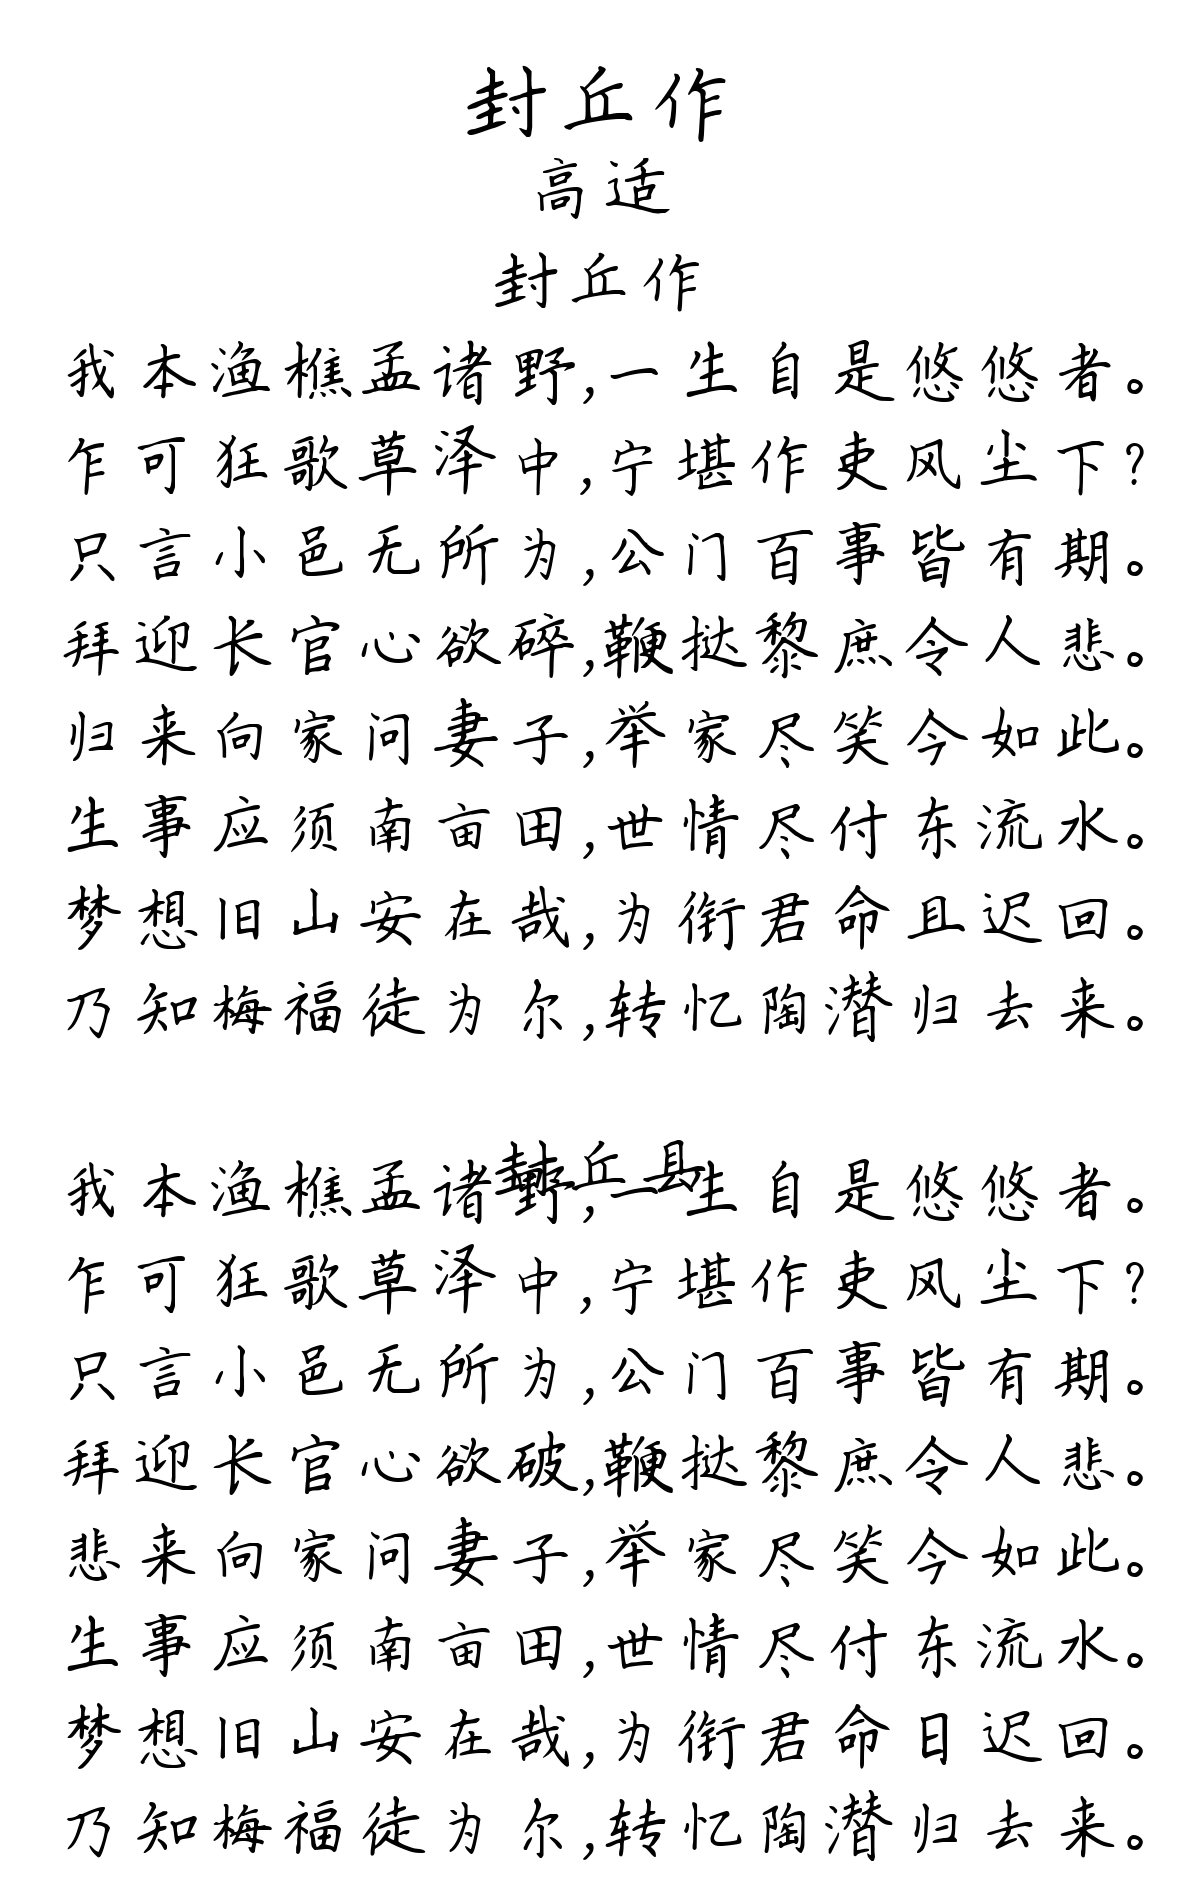 封丘作
高适
封丘作
我本渔樵孟诸野,一生自是悠悠者。
乍可狂歌草泽中,宁堪作吏风尘下?
只言小邑无所为,公门百事皆有期。
拜迎长官心欲碎,鞭挞黎庶令人悲。
归来向家问妻子,举家尽笑今如此。
生事应须南亩田,世情尽付东流水。
梦想旧山安在哉,为衔君命且迟回。
乃知梅福徒为尔,转忆陶潜归去来。
封丘县
我本渔樵孟诸野,一生自是悠悠者。
乍可狂歌草泽中,宁堪作吏风尘下?
只言小邑无所为,公门百事皆有期。
拜迎长官心欲破,鞭挞黎庶令人悲。
悲来向家问妻子,举家尽笑今如此。
生事应须南亩田,世情尽付东流水。
梦想旧山安在哉,为衔君命日迟回。
乃知梅福徒为尔,转忆陶潜归去来。